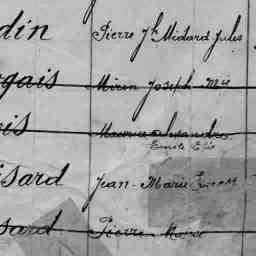 din Pierre Jh Médard Jules
gais Miren Joseph Mie
is Maurice Alexandre
Emile Elie
isard Jean-Marie Ernest
sard Pierre Marie